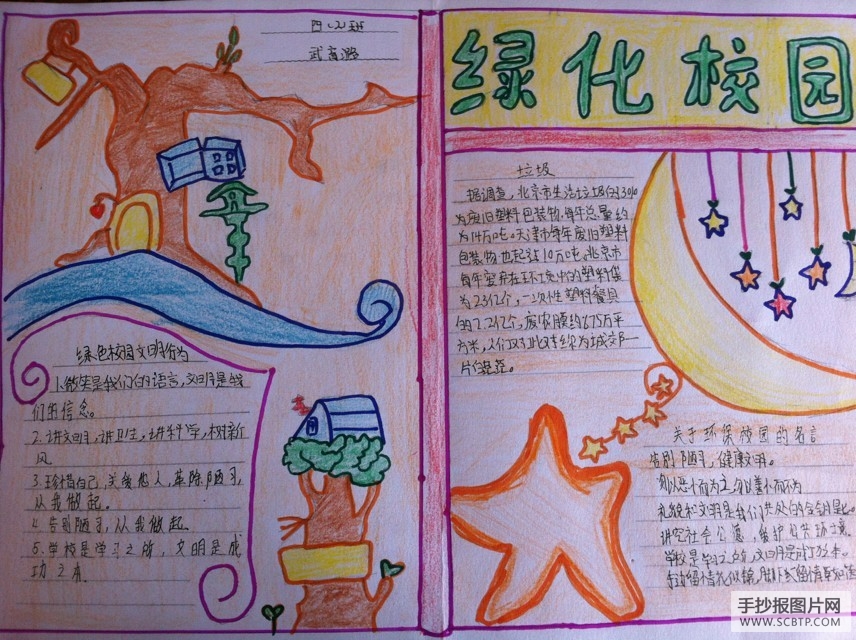 四（2）班
绿化校园
绿色校园文明行为
1.微笑是我们的语言，文明是我
们的信念。
2.讲文明，讲卫生，讲科学，树新
风
3.珍惜自己，关爱他人，革除陋习，
从我做起。
4.告别陋习，从我做起。
5.学校是学习之所，文明是成
功之本
垃圾
据调查，北京市生活垃圾的3%
为废旧塑料包装物，每年总量约
为14万吨。天津市每年废旧塑料
包装物也超过10万吨。北京市
每年丢弃在环境中的塑料袋
为23亿个，一次性塑料餐具
的2.2亿个，废农膜约675万平
方米，人们对此
关于环保校园的名言
告别陋习，健康文明。
勿以恶小而为之，勿以善小而不为
礼貌和文明是我们共处的
讲究社会公德，
学校是学习之
手抄报图片网
WWW.SCBTP.COM